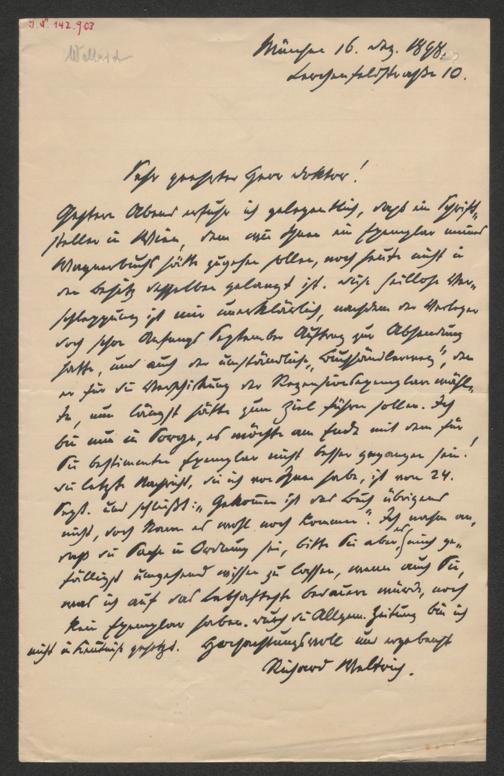 I.N. 142.903
München 16. Dez. 1898.
Lerchenfeldstraße 10.
Sehr geehrter Herr Doktor!
Gestern Abend erfuhr ich gelegentlich, daß ein Schrift-
steller in Wien, dem wie Ihnen ein Exemplar meines
Wagnerbuchs hätte zugehen sollen, noch heute nicht in
den Besitz desselben gelangt ist. Diese heillose Ver-
schleppung ist mir unerklärlich, nachdem der Verleger
doch schon Anfangs September Auftrag zur Absendung
hatte, und auch der umständliche „Buchhändlerweg“, den
er für die Verschickung der Rezensionsexemplare wähl-
te, nun längst hätte zum Ziel führen sollen. Ich
bin nun in Sorge, es möchte am Ende mit dem für
Sie bestimmten Exemplar nicht besser gegangen sein!
Die letzte Nachricht, die ich von Ihnen habe, ist vom 24.
Sept. und schließt: „Gekommen ist das Buch übrigens
nicht, doch kann es wohl noch kommen“. Ich nehme an,
daß die Sache in Ordnung sei, bitte Sie aber es mich ge-
fälligst umgehend wissen zu lassen, wenn auch Sie,
was ich auf das lebhafteste bedauern würde, noch
kein Exemplar haben. Durch die Allgem. Zeitung bin ich
nicht in Kenntniß gesetzt. Hochachtungsvoll und ergebenst
Richard Weltrich.